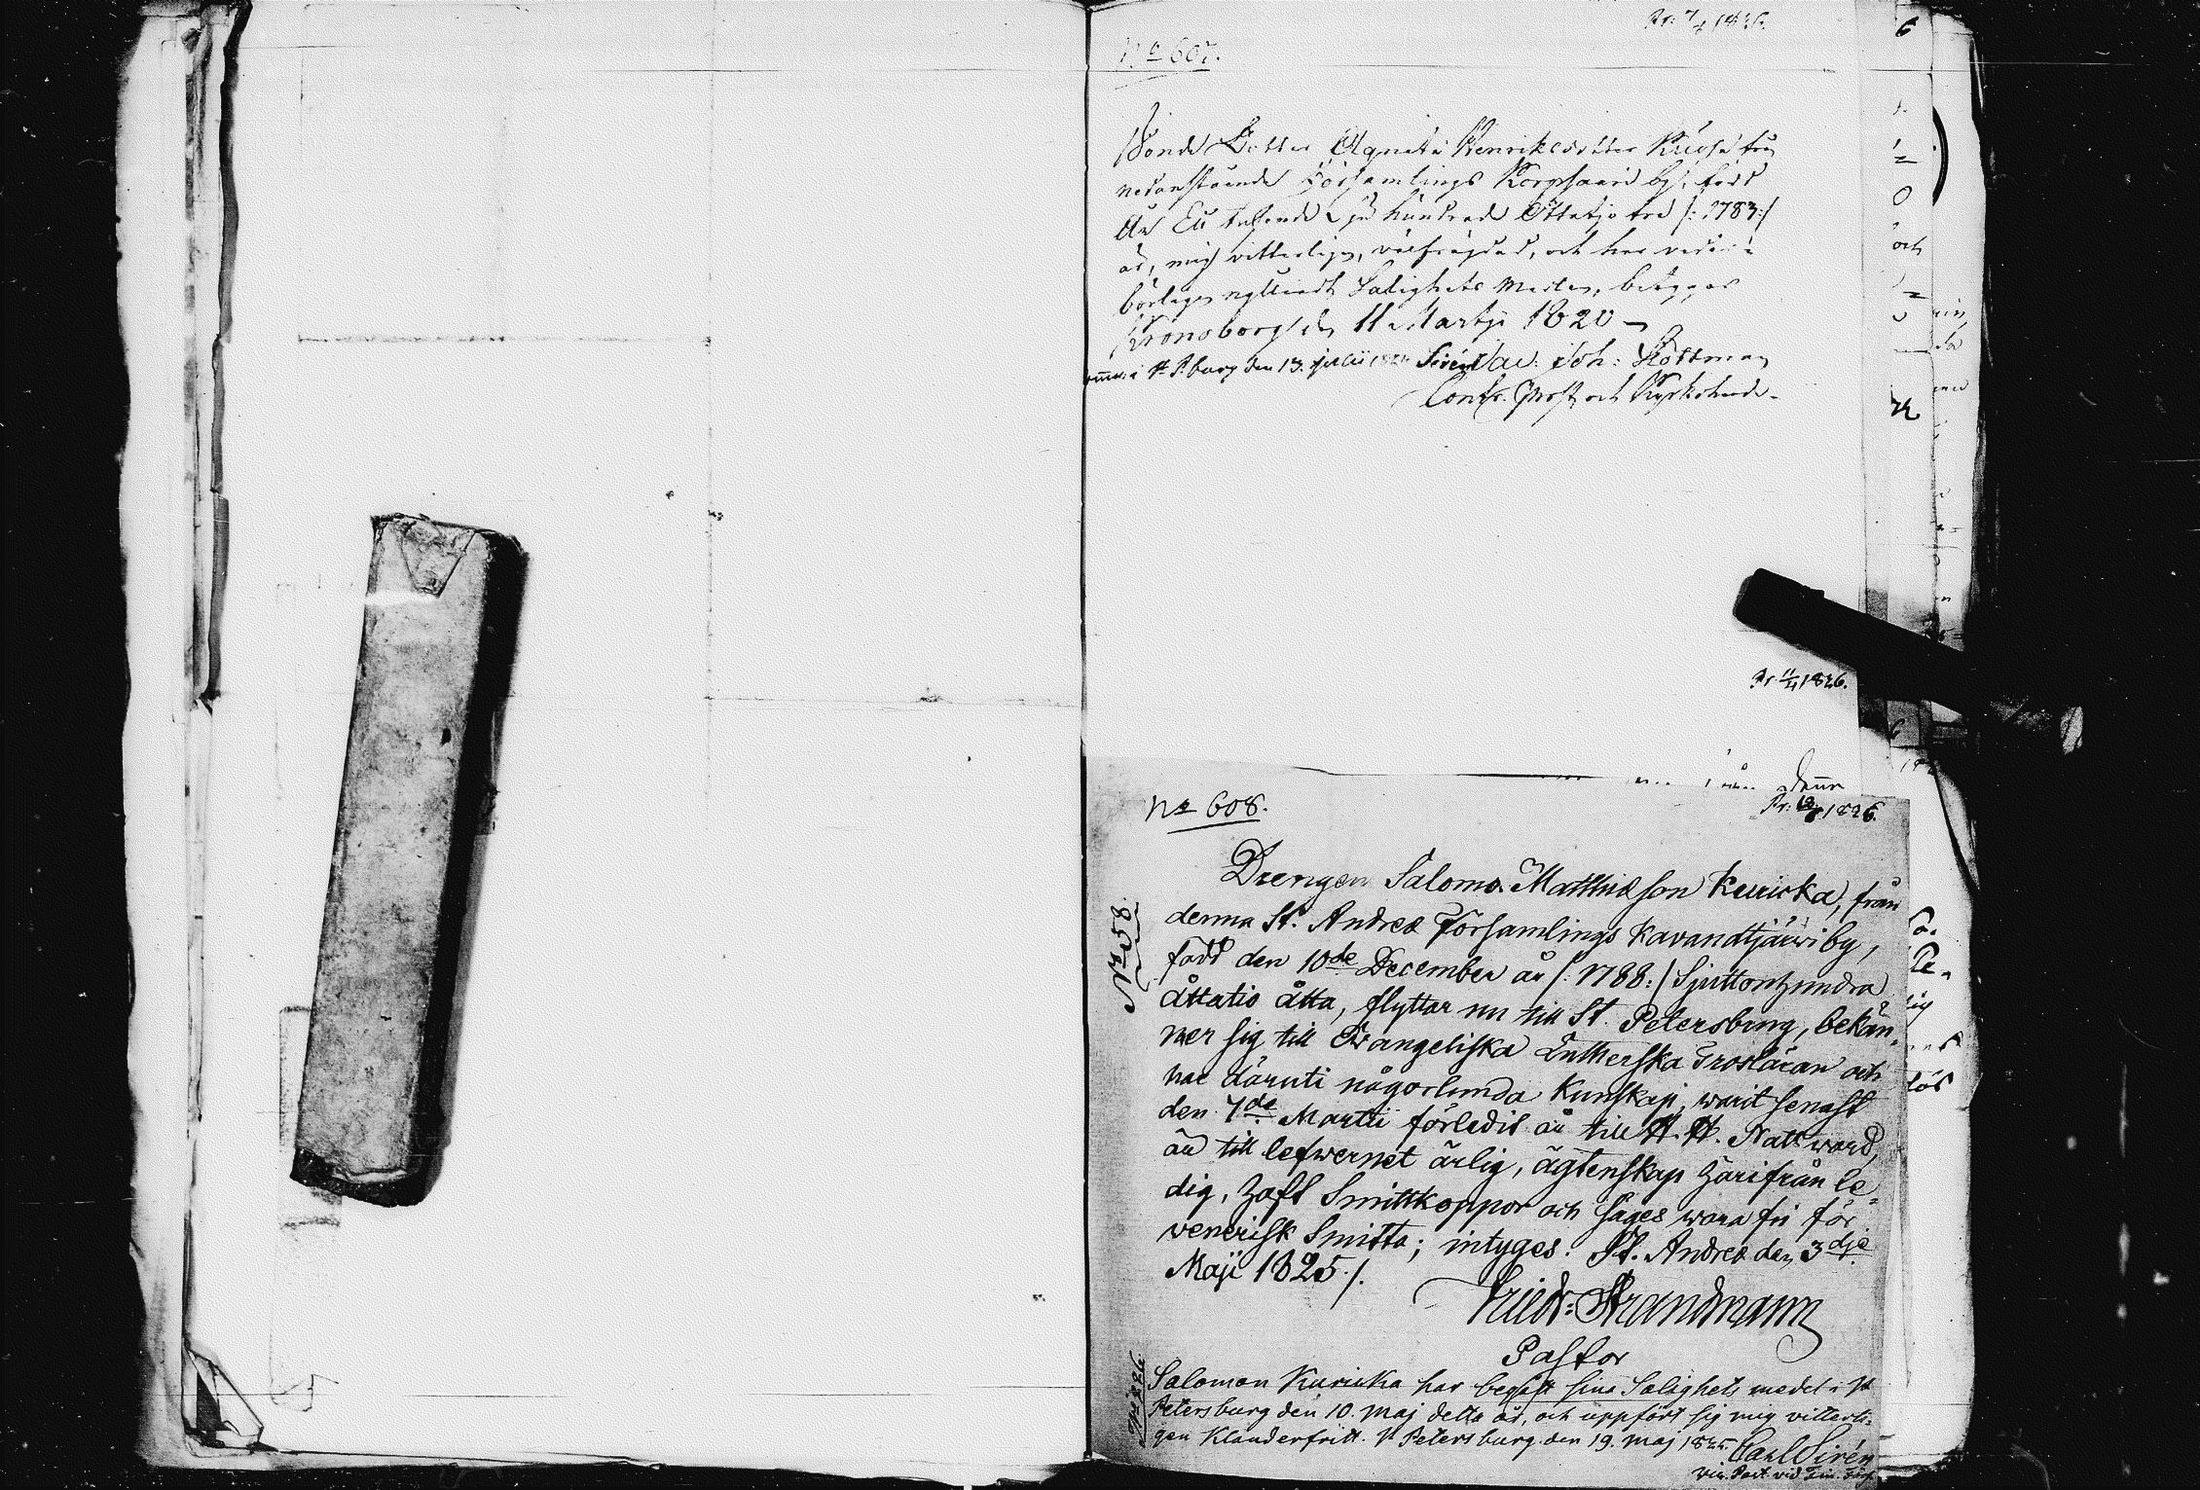 No 607.
Bonde Dotter Agneta Henriksdotter från
nedanstående Församlings Korpsaari by, född
År Ett tusende Sju hundrade Ottatjo tre /: 1783:/
är, mig witterligen, välfrägdad, och har veder=
börligen nyttiadt Salighets Medlen, betygar
Kronoborg den 11 Martji 1820
i St P.burg den 13. Sirén Joh:
Cont. Prost och Kyrkoherde.
Pr. 11/4 1826.
No 608.
Pr: 1826.
No 58.
Drengen Salomo Matthias son Kuricka, från
denna St. Andreæ Församlings Kavandtjärwi by,
född den 10de December år /: 1788:/ Sjuttonhundra
åttatio åtta, flyttar nu till St. Petersburg, bekän=
ner sig till Evangeliska Lutherska Trosläran och
har däruti någorlunda Kunskap, warit senast
den 7de Martii förledit år till H. H. Nattward,
är till lefwernet ärlig, ägtenskap härifrån le=
dig, haft Smittkoppor och säges wara fri för
venerisk Smitta; intyges. St. Andreæ den 3dje
Maji 1825./.
Friedr: Strandmann
Pastor
Salomon Kuricka har begått sina Salighets medel i St
Petersburg den 10. Maj detta år, och uppfört sig mig vitterli=
gen Klanderfritt. St Petersburg den 19. Maj 1825. Carl Sirén
Vic. Past. vid Fin. Förs.